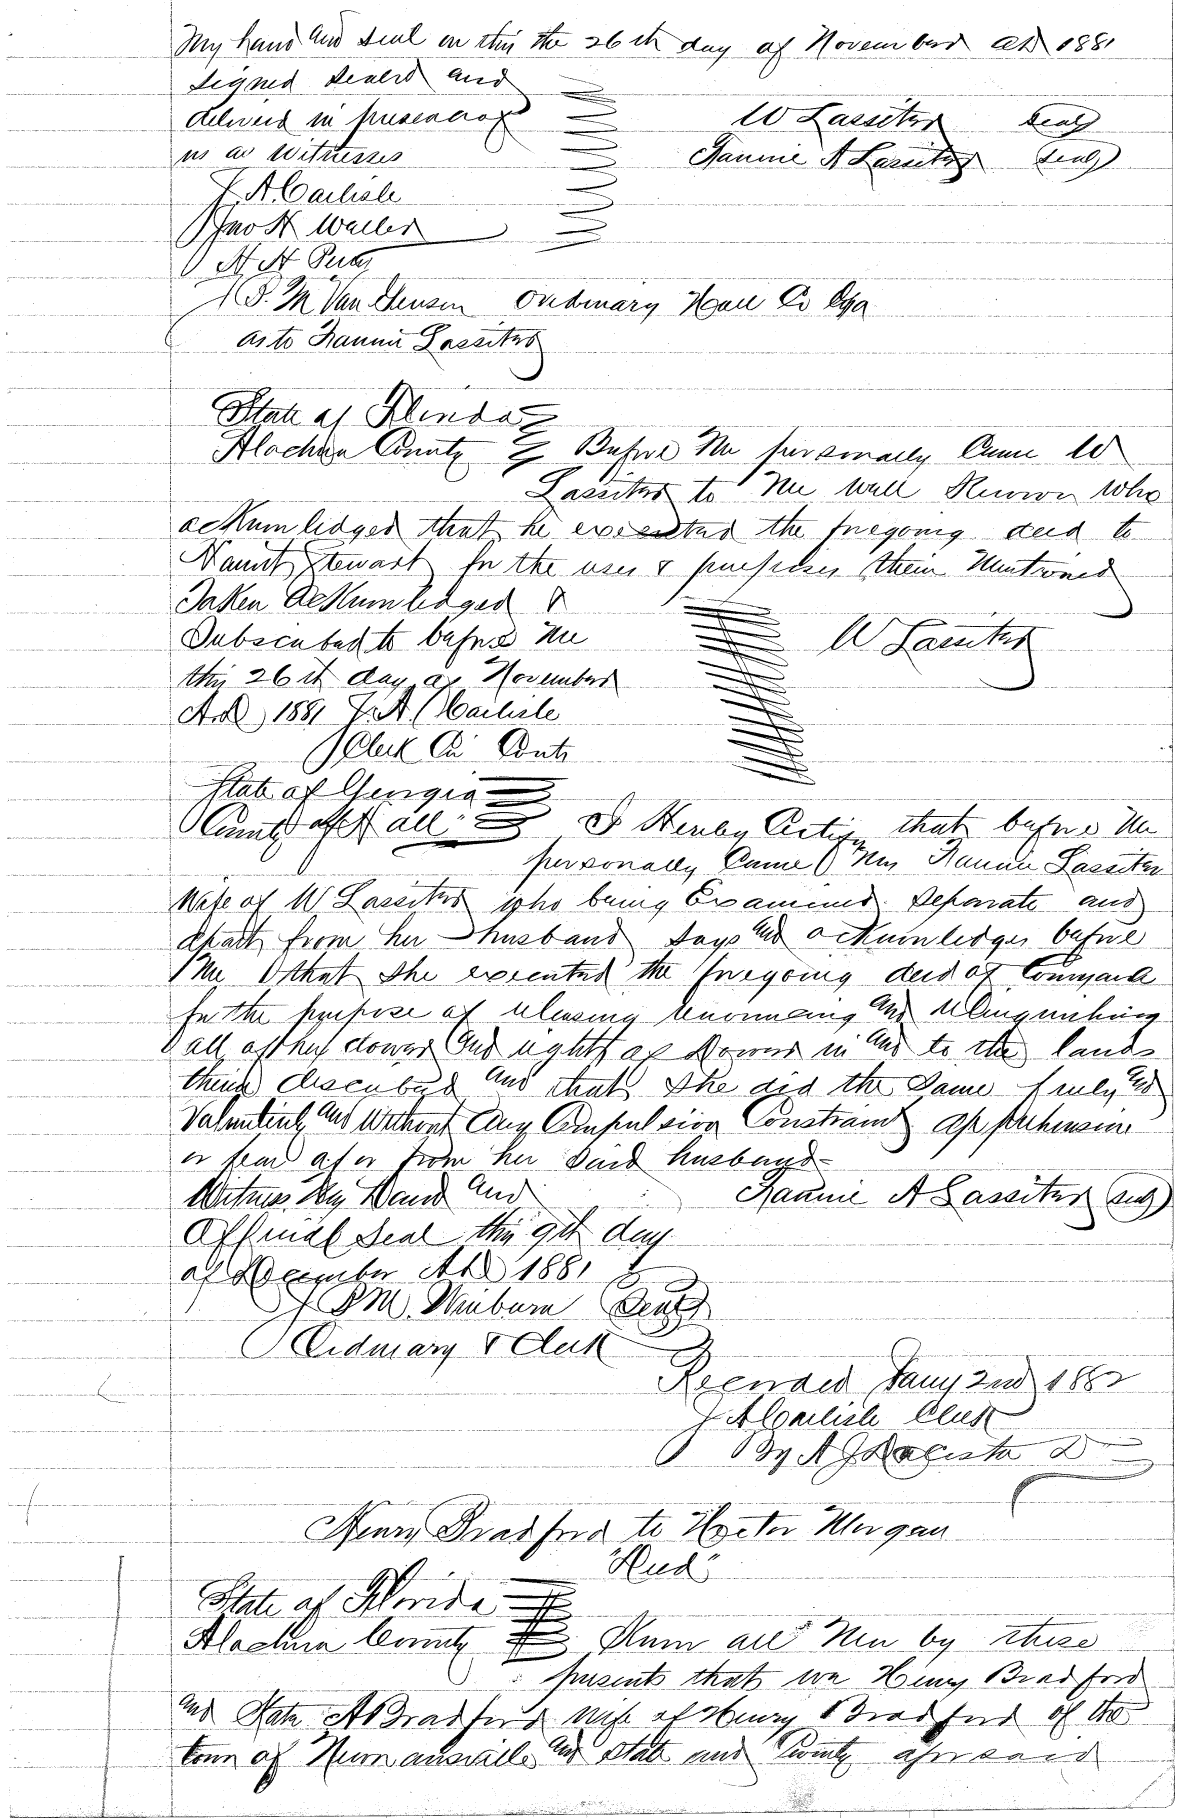 My hand and seal on this the 26th day of November AD 1881
Signed Sealed and
delivered in presence of
us as Witnesses
W Lassiter Seal
Fannie A Lassiter Seal
J. A. Carlisle
Jno H
H H
M Van Ordinary Hall Co Ga
as to Fannie Lassiter
State of Florida
Alachua County Before Me personally Came W
Lassiter to Me well Known Who
acknowledged that he executed the foregoing deed to
Stewart for the uses & purposes therein Mentioned
Taken Acknowledged &
Subscribed to before Me
this 26th day of November
A.D 1881 J. A. Carlisle
Clerk Cir Court
W Lassiter
State of Georgia
County of Hall I Hereby Certify that before Me
personally Came Mrs Fannie Lassiter
Wife of W Lassiter who being Examined Separate and
apart from her husband Says and acknowledges before
Me that She executed the foregoing deed of Conveyance
for the purpose of releasing renouncing and relinquishing
all of her dower and right of Dower in and to the lands
therein described and that She did the Same freely and
Voluntarily and Without Any Compulsion Constraint apprehension
or fear of or from her Said husband
Witness My Hand and
Fannie A Lassiter Seal
Official Seal this 9th day
of December AD 1881
M. Winburn Seal
Ordinary & Clerk
Recorded Jany 2nd 1882
J A Carlisle Clerk
By A J DaCosta D
Henry Bradford to Hector Morgan
"Deed"
State of Florida
Alachua County Know all Men by these
presents that we Henry Bradford
and Kate A Bradford wife of Henry Bradford of the
town of Newnansville and State and County aforesaid